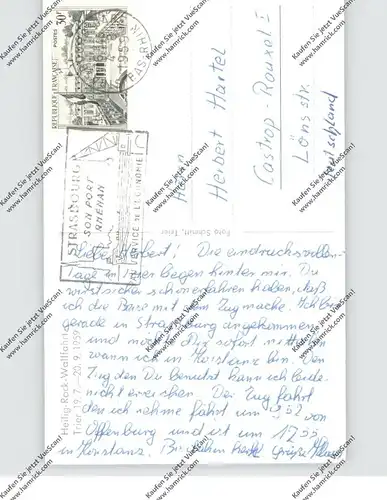 Kaufen Sie jetzt VueScan!
www.hamrick.com
30f
POSTES
REPUBLIQUE FRANÇAISE
1959
BAS-RHIN
STRASBOURG
SON PORT
RHENAN
SERVICE de l'ECONOMIE
Herrn
Herbert Hartel
Castrop-Rauxel I
Löns str.
Deutschland
Foto Schmitt, Trier
Heilig-Rock-Wallfahrt
Trier 19.7.–20.9.1959
Lieber Herbert! Die eindrucksvollen
Tage in Trier liegen hinter mir. Du
wirst sicher schon erfahren haben, daß
ich die Reise mit dem Zug mache. Ich bin
gerade in Strassburg angekommen
und möchte Dir sofort mitteilen
wann ich in Konstanz bin. Den
Zug den Du benutzt kann ich leider
nicht erreichen. Der Zug fährt
den ich nehme fährt um 952 von
Offenburg und ist um 1255
in Konstanz. Bis dahin herzl. Grüße